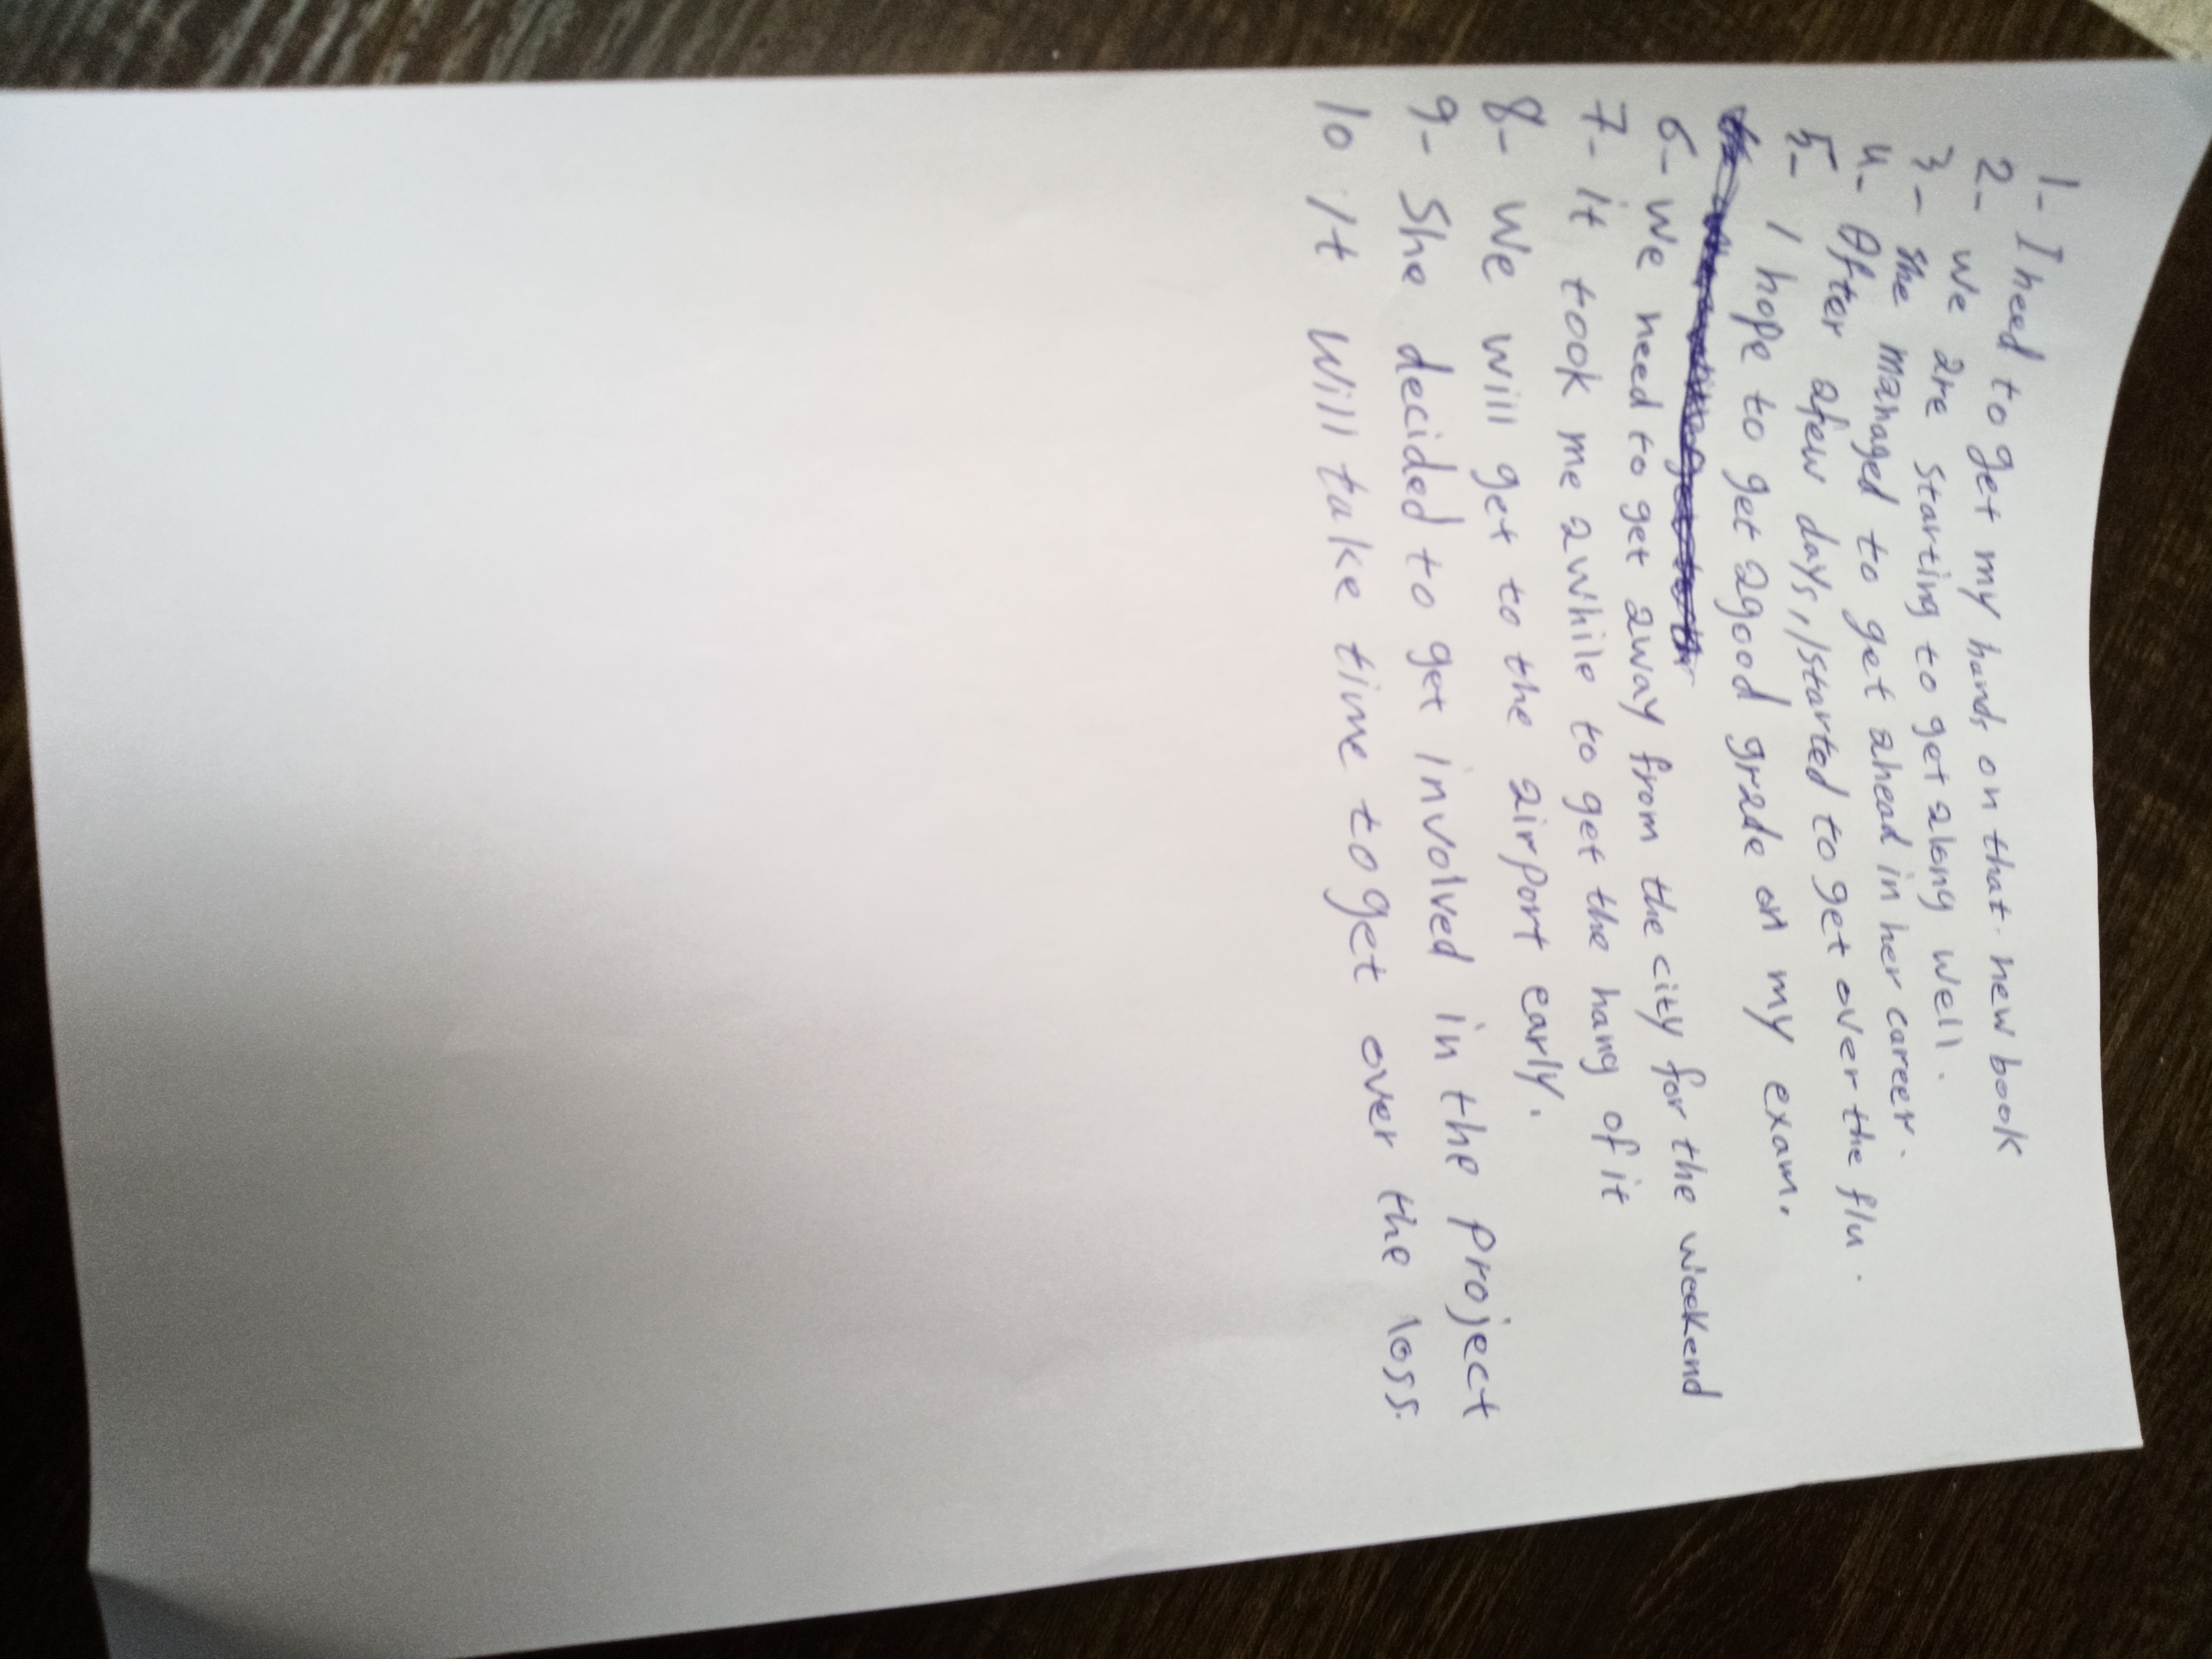 1- I need to get my hands on that new book
2- we are starting to get along well.
3- she managed to get ahead in her career.
4- After afew days, I started to get over the flu.
5- I hope to get agood grade on my exam.
6- we need to get away from the city for the weekend
7- it took me awhile to get the hang of it
8- We will get to the airport early.
9- She decided to get involved in the project
10 It will take time to get over the loss.